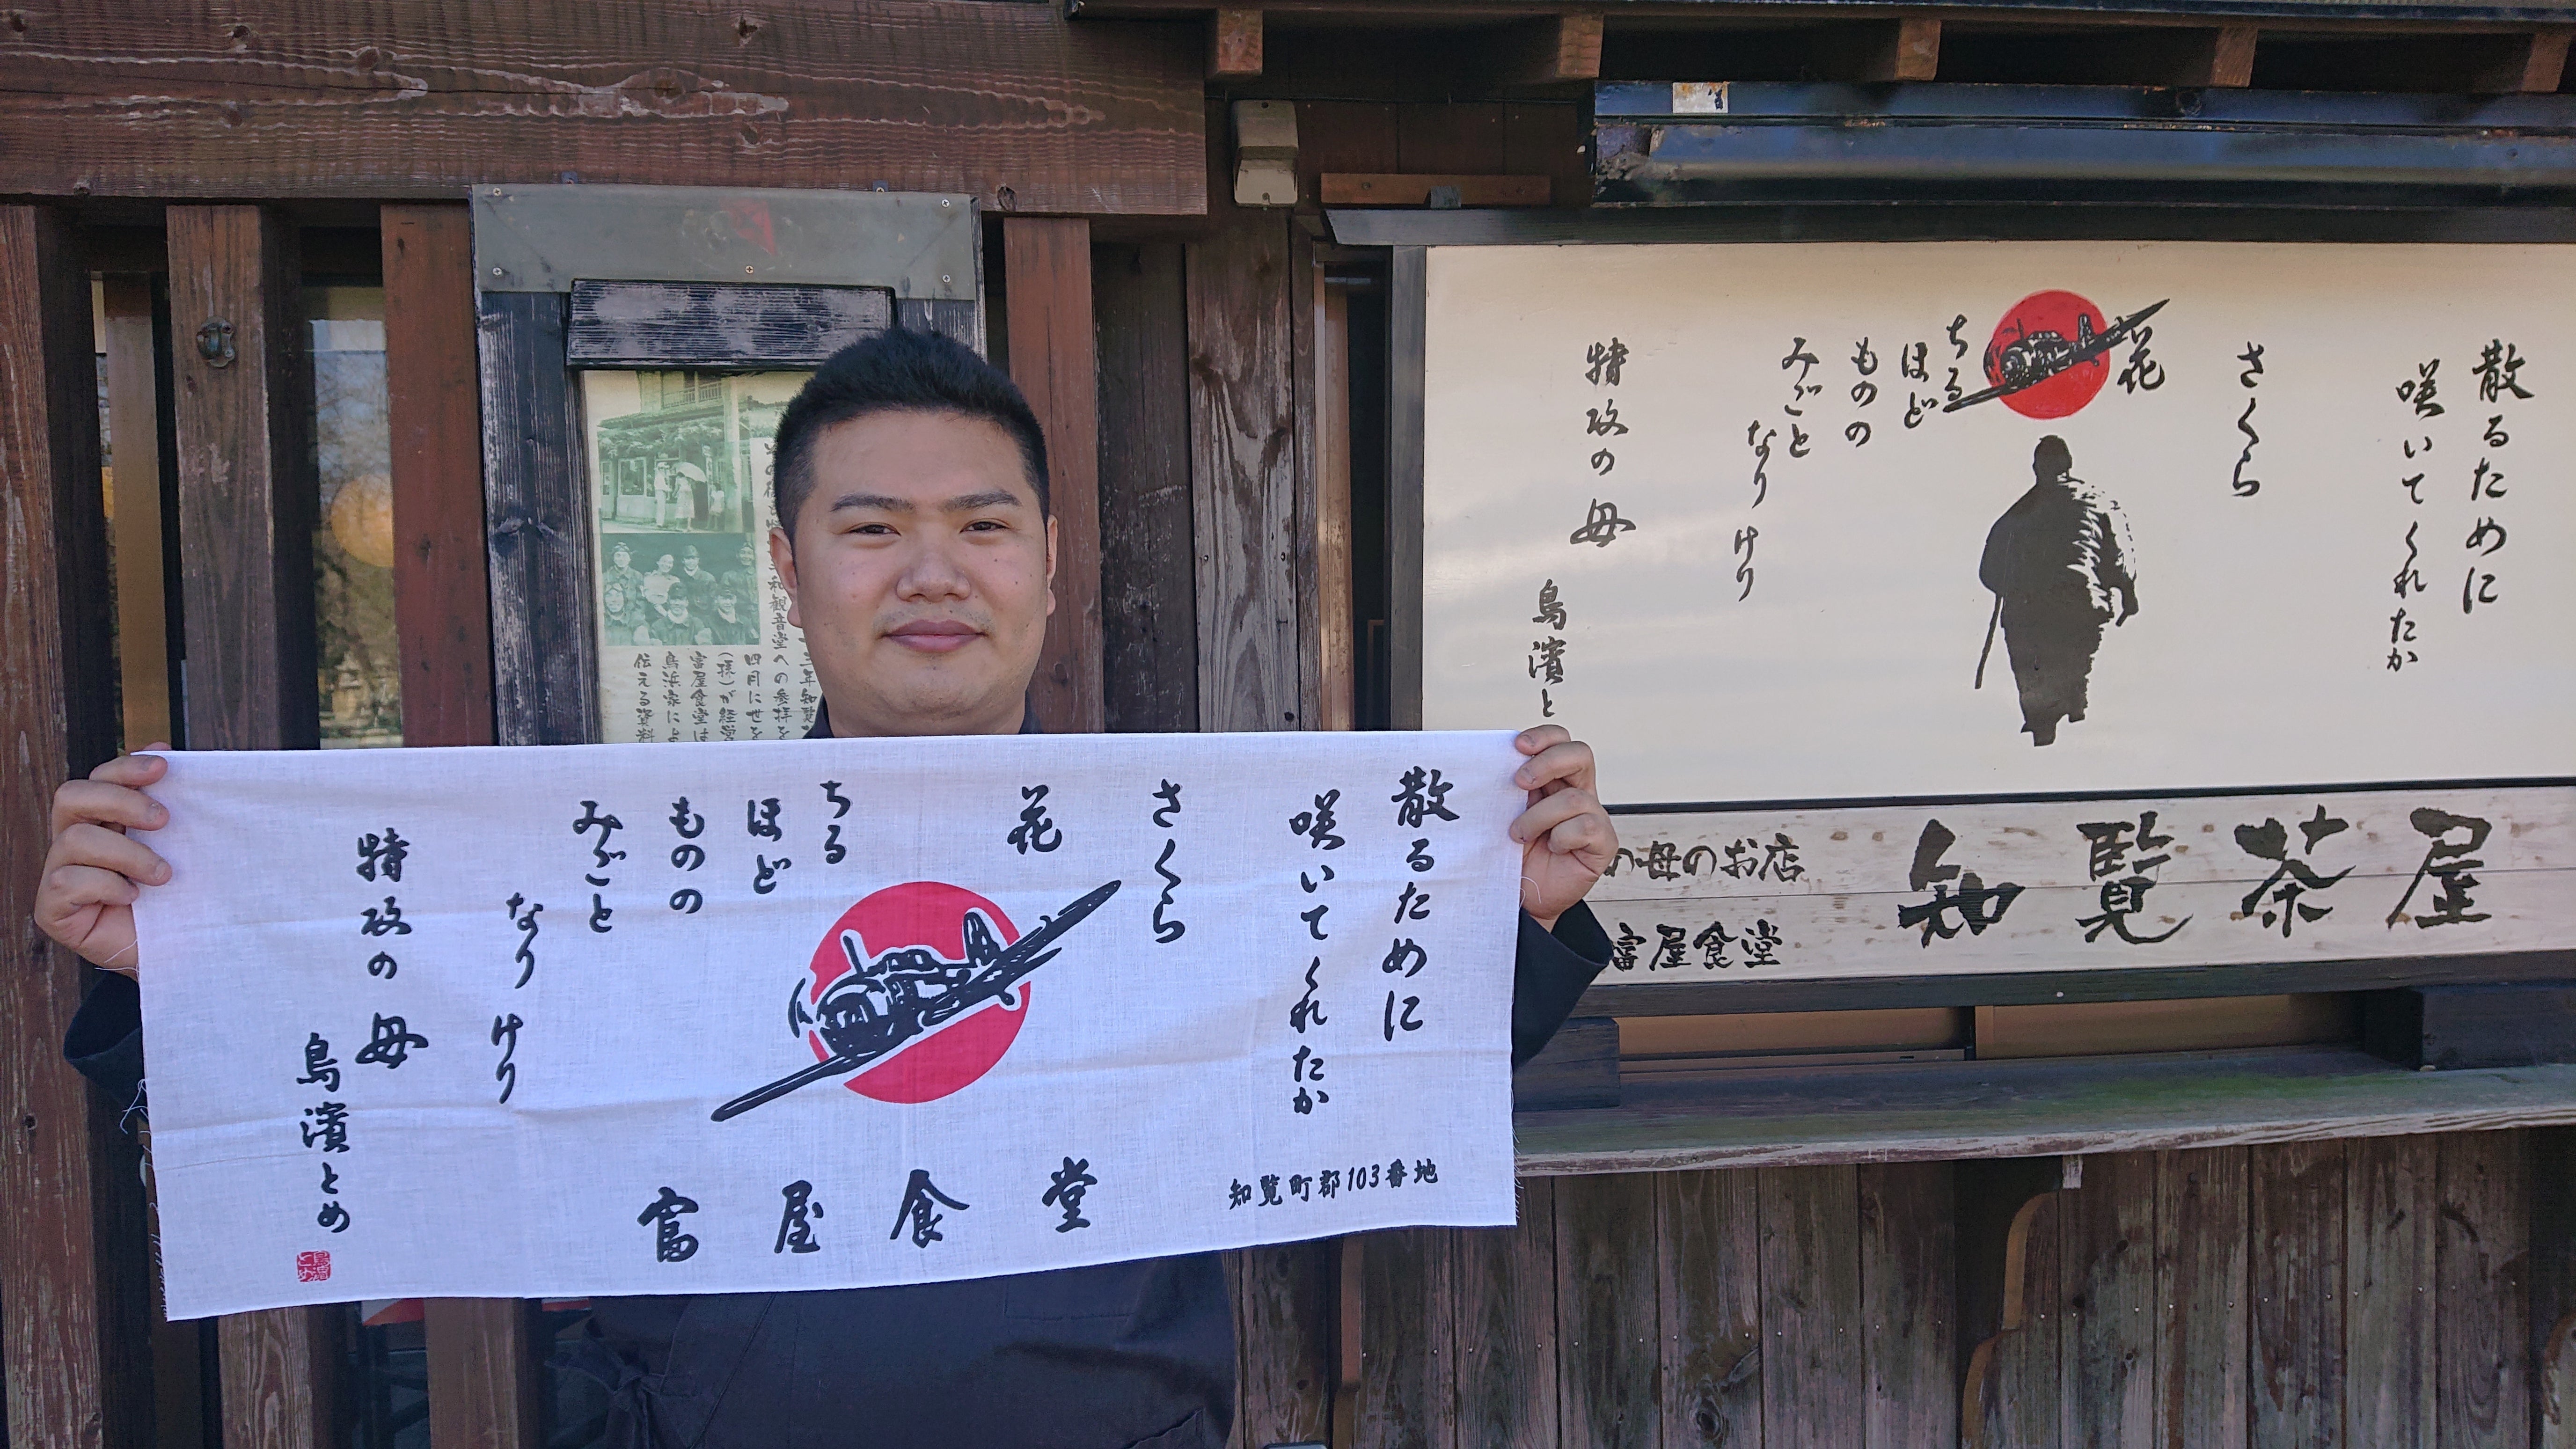 散るために
咲いてくれたか
さくら
花
ちる
ほど
ものの
みごと
なり
けり
特攻の母
鳥濱とめ
富屋食堂
知覧町郡103番地
散るために
咲いてくれたか
さくら
花
ちる
ほど
ものの
みごと
なり
けり
特攻の母
鳥濱と
知覧茶屋
の母のお店
富屋食堂
和観音堂への参拝を
四月に
富屋食堂は
伝える資料